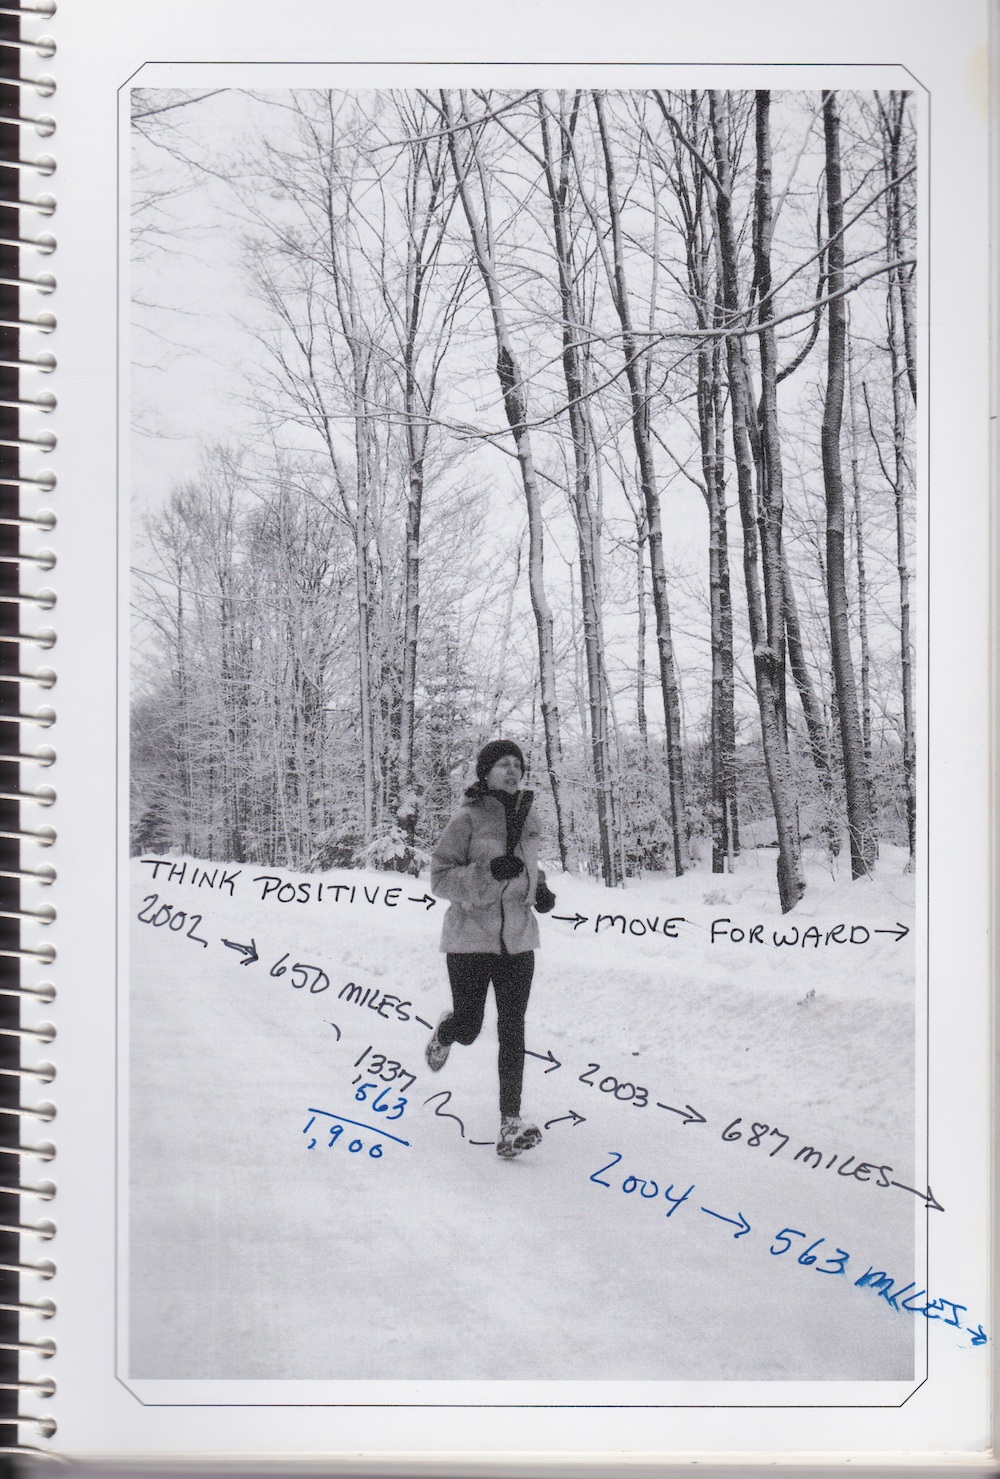 THINK POSITIVE → → MOVE FORWARD →
2002 → 650 MILES → 2003 → 687 MILES →
1337
,563
1,900
2004 → 563 MILES →